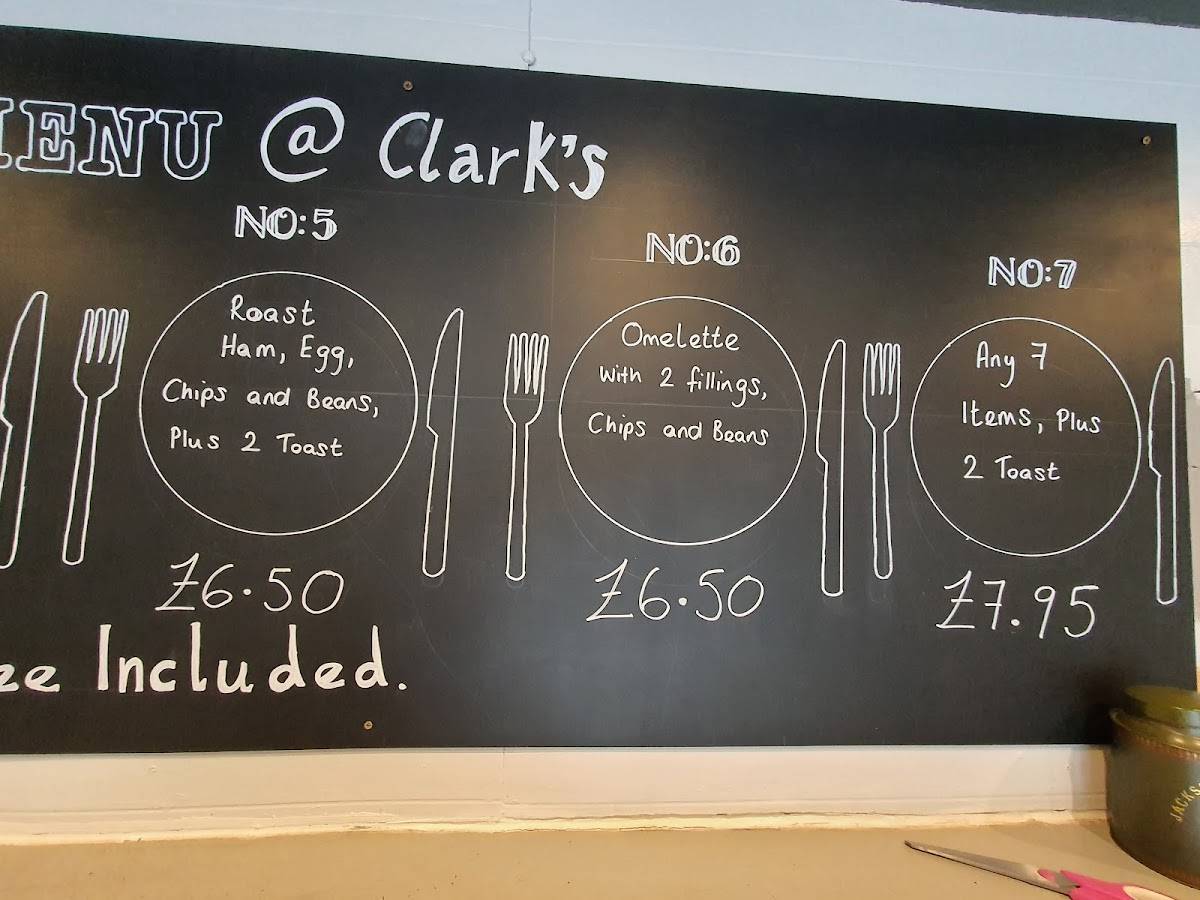 MENU @ Clark's
NO:5
Roast
Ham, Egg,
Chips and Beans,
Plus 2 Toast
£6.50
NO:6
Omelette
With 2 fillings,
Chips and Beans
£6.50
NO:7
Any 7
Items, Plus
2 Toast
£7.95
ee Included.